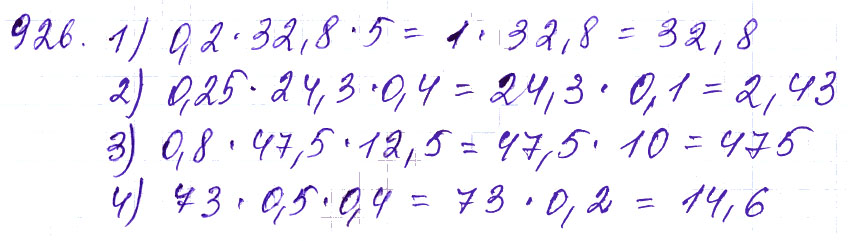 926. 1) 0,2 · 32,8 · 5 = 1 · 32,8 = 32,8
2) 0,25 · 24,3 · 0,4 = 24,3 · 0,1 = 2,43
3) 0,8 · 47,5 · 12,5 = 47,5 · 10 = 475
4) 73 · 0,5 · 0,4 = 73 · 0,2 = 14,6